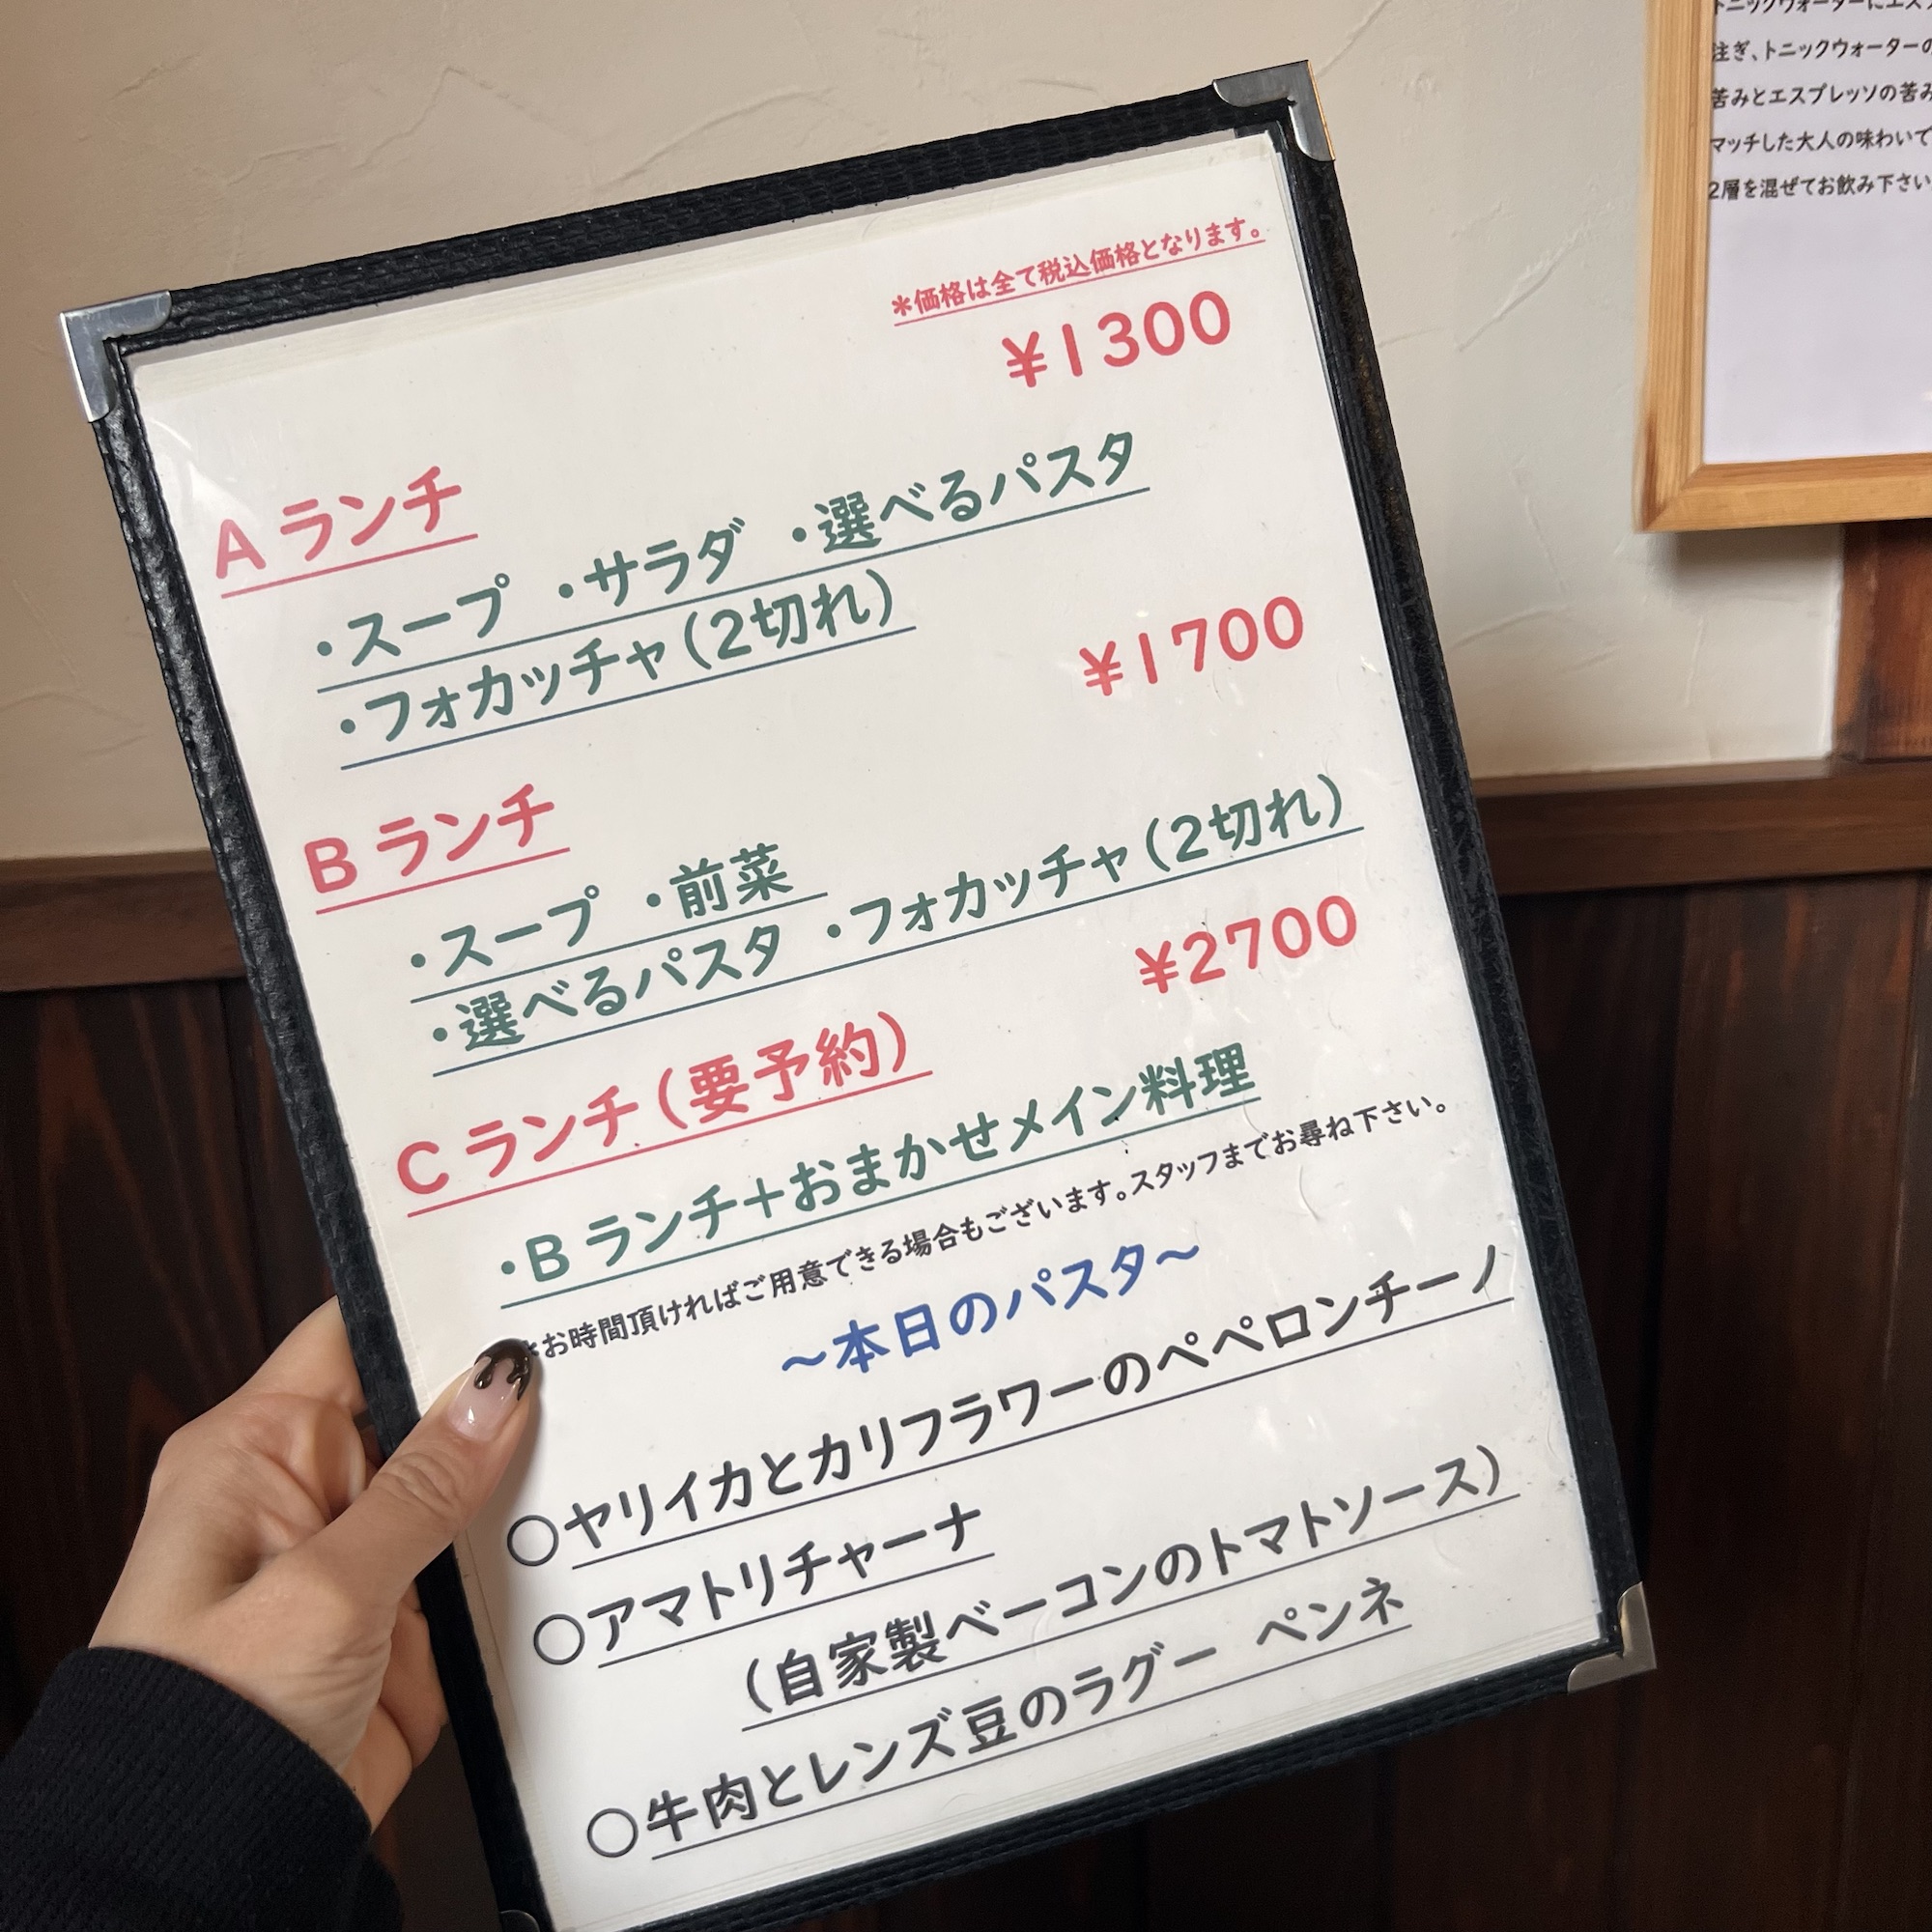 *価格は全て税込価格となります。
¥1300
Aランチ
・スープ ・サラダ ・選べるパスタ
・フォカッチャ(2切れ)
¥1700
Bランチ
・スープ ・前菜
・選べるパスタ ・フォカッチャ(2切れ)
¥2700
Cランチ(要予約)
・Bランチ+おまかせメイン料理
*お時間頂ければご用意できる場合もございます。スタッフまでお尋ね下さい。
～本日のパスタ～
○ヤリイカとカリフラワーのペペロンチーノ
○アマトリチャーナ
(自家製ベーコンのトマトソース)
○牛肉とレンズ豆のラグー ペンネ
トニックウォーターにエス
注ぎ、トニックウォーターの
苦みとエスプレッソの苦み
マッチした大人の味わいで
2層を混ぜてお飲み下さい